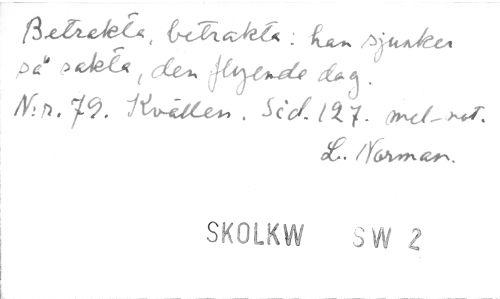 Betrakta, betrakta: han sjunker
så sakta, den flyende dag.
N:r. 79. Kvällen. Sid. 127. mel-not.
L. Norman.
SKOLKW SW 2